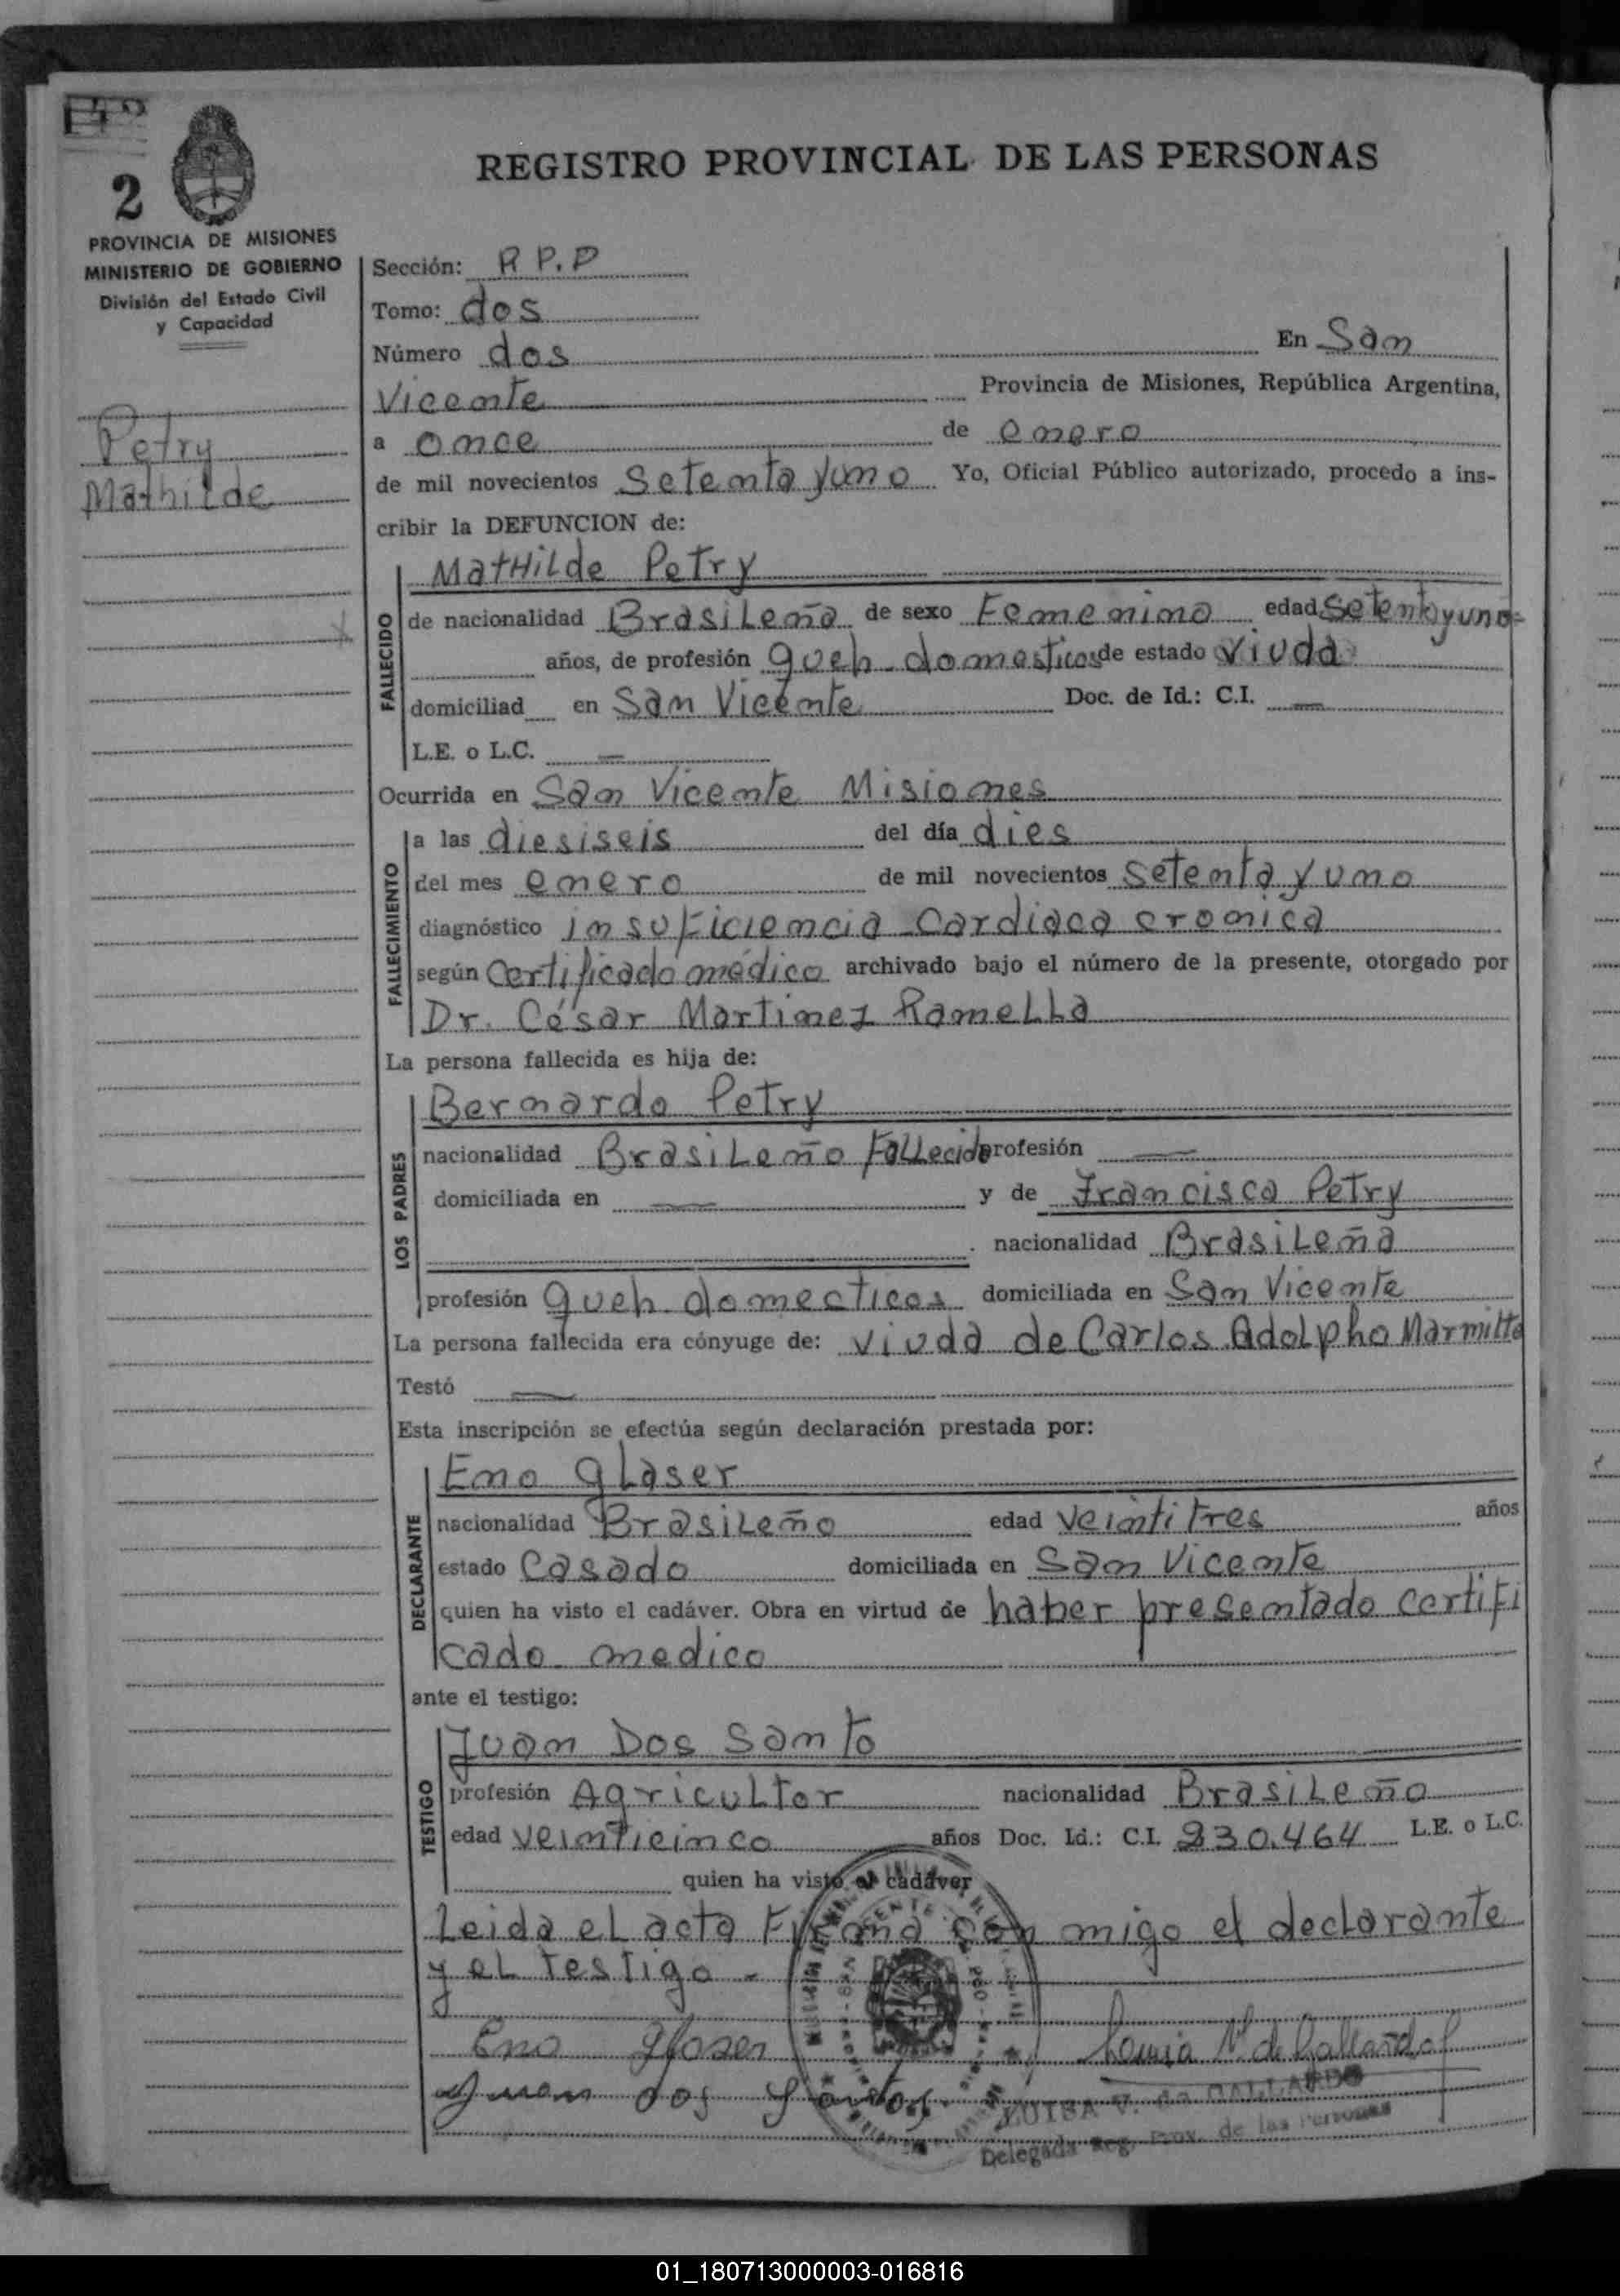 2
REGISTRO PROVINCIAL DE LAS PERSONAS
PROVINCIA DE MISIONES
MINISTERIO DE GOBIERNO
División del Estado Civil
y Capacidad
Petry
Mathilde
Sección: R P.P
Tomo: dos
Número dos En San
Vicente Provincia de Misiones, República Argentina,
a once de enero
de mil novecientos setenta y uno Yo, Oficial Público autorizado, procedo a ins-
cribir la DEFUNCION de:
FALLECIDO
MatHilde Petry
de nacionalidad Brasileña de sexo Femenino edad setenta y uno
años, de profesión queh domesticos de estado viuda
domiciliad en San Vicente Doc. de Id.: C.I. —
L.E. o L.C. —
Ocurrida en San Vicente Misiones
FALLECIMIENTO
a las diesiseis del día dies
del mes enero de mil novecientos setenta y uno
diagnóstico insuficiencia cardiaca cronica
según certificado médico archivado bajo el número de la presente, otorgado por
Dr. César Martinez Ramella
La persona fallecida es hija de:
LOS PADRES
Bernardo Petry
nacionalidad Brasileño Fallecido profesión —
domiciliada en — y de Francisca Petry
nacionalidad Brasileña
profesión queh domecticos domiciliada en San Vicente
La persona fallecida era cónyuge de: viuda de Carlos Adolpho Marmitta
Testó —
Esta inscripción se efectúa según declaración prestada por:
DECLARANTE
Eno Glaser
nacionalidad Brasileño edad veintitres años
estado Casado domiciliada en San Vicente
quien ha visto el cadáver. Obra en virtud de haber presentado certifi
cado medico
ante el testigo:
TESTIGO
Juan Dos Santo
profesión Agricultor nacionalidad Brasileño
edad veinticinco años Doc. Id.: C.I. 230.464 L.E. o L.C.
quien ha visto el cadáver
Leida el acta Firma con migo el declarante
y el testigo -
Eno Glaser
Luisa V. de Gallardo
Juan dos Santos
LUISA V. de GALLARDO
Delegada Reg. Prov. de las Personas
01_180713000003-016816